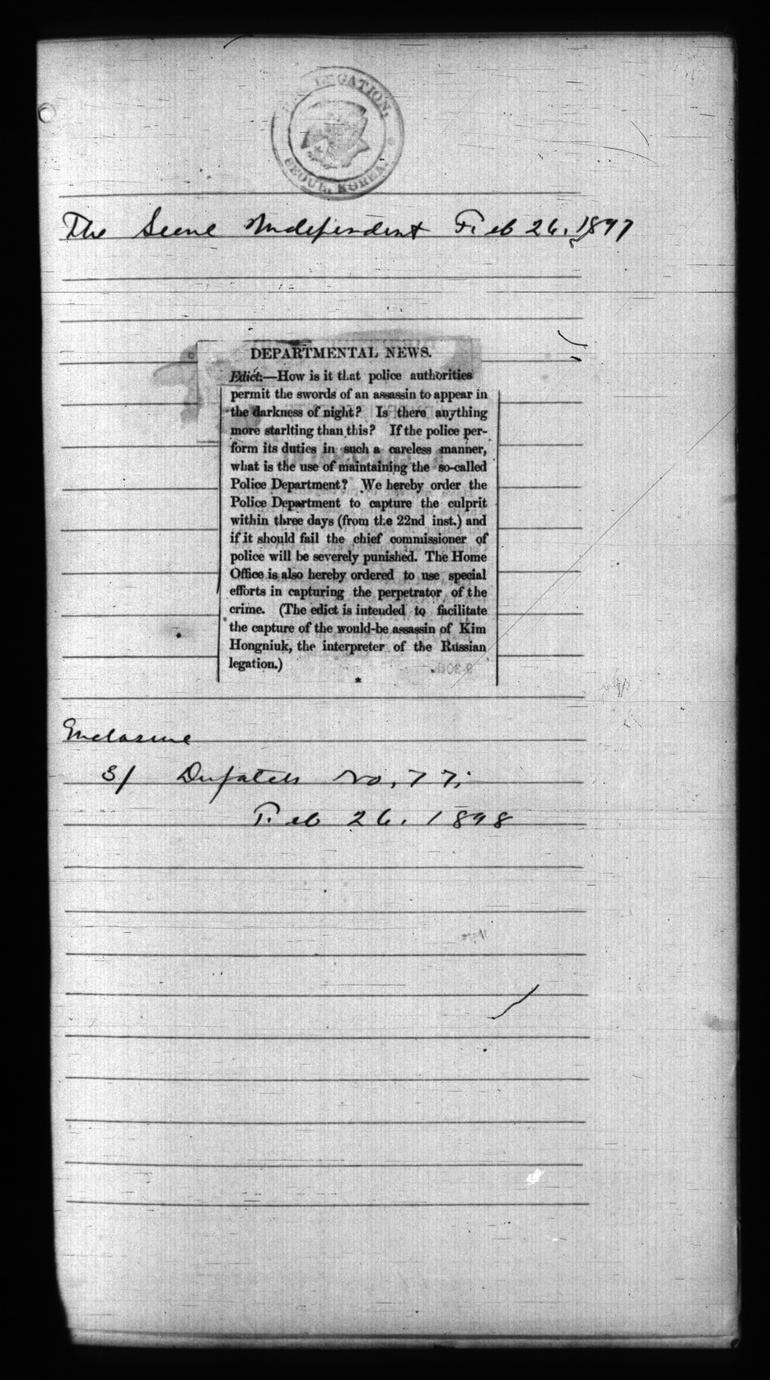 U.S. LEGATION,
SEOUL, KOREA.
The Seoul Independent Feb 26, 1897
DEPARTMENTAL NEWS.
Edict:—How is it that police authorities
permit the swords of an assassin to appear in
the darkness of night? Is there anything
more starlting than this? If the police per-
form its duties in such a careless manner,
what is the use of maintaining the so-called
Police Department? We hereby order the
Police Department to capture the culprit
within three days (from the 22nd inst.) and
if it should fail the chief commissioner of
police will be severely punished. The Home
Office is also hereby ordered to use special
efforts in capturing the perpetrator of the
crime. (The edict is intended to facilitate
the capture of the would-be assassin of Kim
Hongniuk, the interpreter of the Russian
legation.)
*
Enclosure
3/ Dispatch No. 77;
Feb 26. 1898